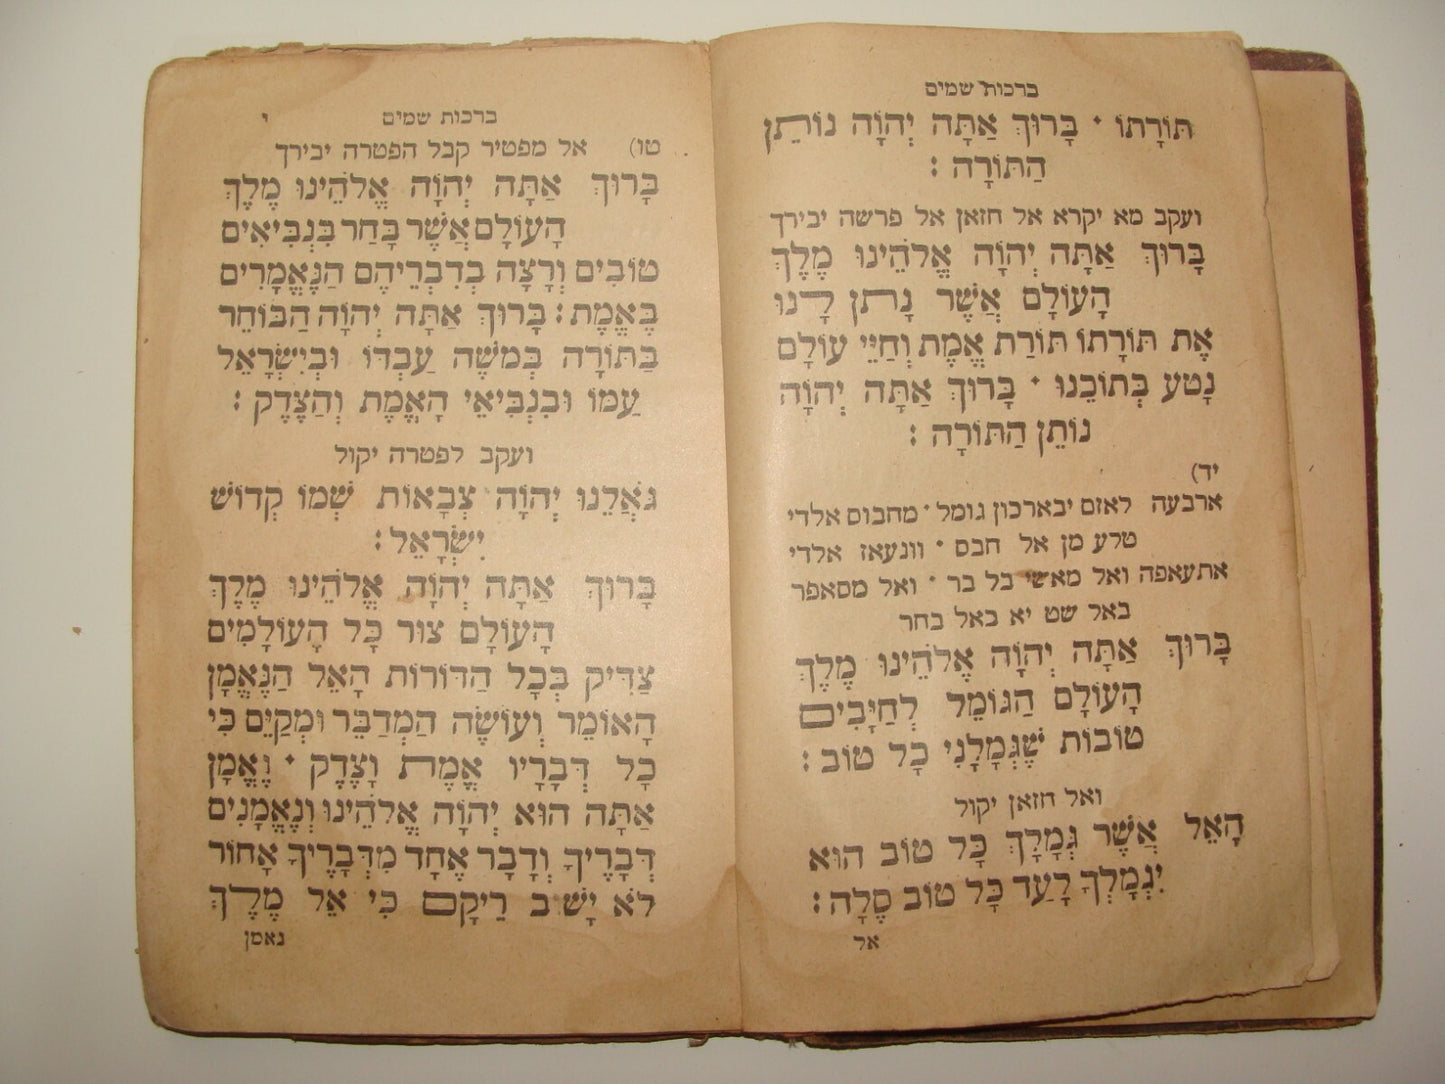 ברכות שמים
תּוֹרָתוֹ · בָּרוּךְ אַתָּה יְהֹוָה נוֹתֵן
הַתּוֹרָה :
ועקב מא יקרא אל חזאן אל פרשה יבירך
בָּרוּךְ אַתָּה יְהֹוָה אֱלֹהֵינוּ מֶלֶךְ
הָעוֹלָם אֲשֶׁר נָתַן לָנוּ
אֶת תּוֹרָתוֹ תּוֹרַת אֱמֶת וְחַיֵּי עוֹלָם
נָטַע בְּתוֹכֵנוּ · בָּרוּךְ אַתָּה יְהֹוָה
נוֹתֵן הַתּוֹרָה :
יד)
ארבעה לאזם יבארכון גומל · מחבוס אלדי
טלע מן אל חבס · ווגעאן אלדי
אתעאפה ואל מאשי בל בר · ואל מסאפר
באל שט יא באל בחר
בָּרוּךְ אַתָּה יְהֹוָה אֱלֹהֵינוּ מֶלֶךְ
הָעוֹלָם הַגּוֹמֵל לְחַיָּבִים
טוֹבוֹת שֶׁגְּמָלָנִי כָּל טוֹב :
ואל חזאן יקול
הָאֵל אֲשֶׁר גְּמָלָךְ כָּל טוֹב הוּא
יִגְמָלְךָ לָעַד כָּל טוֹב סֶלָה :
אל
ברכות שמים י
טו) אל מפטיר קבל הפטרה יבירך
בָּרוּךְ אַתָּה יְהֹוָה אֱלֹהֵינוּ מֶלֶךְ
הָעוֹלָם אֲשֶׁר בָּחַר בִּנְבִיאִים
טוֹבִים וְרָצָה בְדִבְרֵיהֶם הַנֶּאֱמָרִים
בֶּאֱמֶת : בָּרוּךְ אַתָּה יְהֹוָה הַבּוֹחֵר
בַּתּוֹרָה בְּמֹשֶׁה עַבְדּוֹ וּבְיִשְׂרָאֵל
עַמּוֹ וּבִנְבִיאֵי הָאֱמֶת וְהַצֶּדֶק :
ועקב לפטרה יקול
גֹּאֲלֵנוּ יְהֹוָה צְבָאוֹת שְׁמוֹ קְדוֹשׁ
יִשְׂרָאֵל :
בָּרוּךְ אַתָּה יְהֹוָה אֱלֹהֵינוּ מֶלֶךְ
הָעוֹלָם צוּר כָּל הָעוֹלָמִים
צַדִּיק בְּכָל הַדּוֹרוֹת הָאֵל הַנֶּאֱמָן
הָאוֹמֵר וְעוֹשֶׂה הַמְדַבֵּר וּמְקַיֵּם כִּי
כָל דְּבָרָיו אֱמֶת וָצֶדֶק · נֶאֱמָן
אַתָּה הוּא יְהֹוָה אֱלֹהֵינוּ וְנֶאֱמָנִים
דְּבָרֶיךָ וְדָבָר אֶחָד מִדְּבָרֶיךָ אָחוֹר
לֹא יָשׁוּב רֵיקָם כִּי אֵל מֶלֶךְ
נאמן